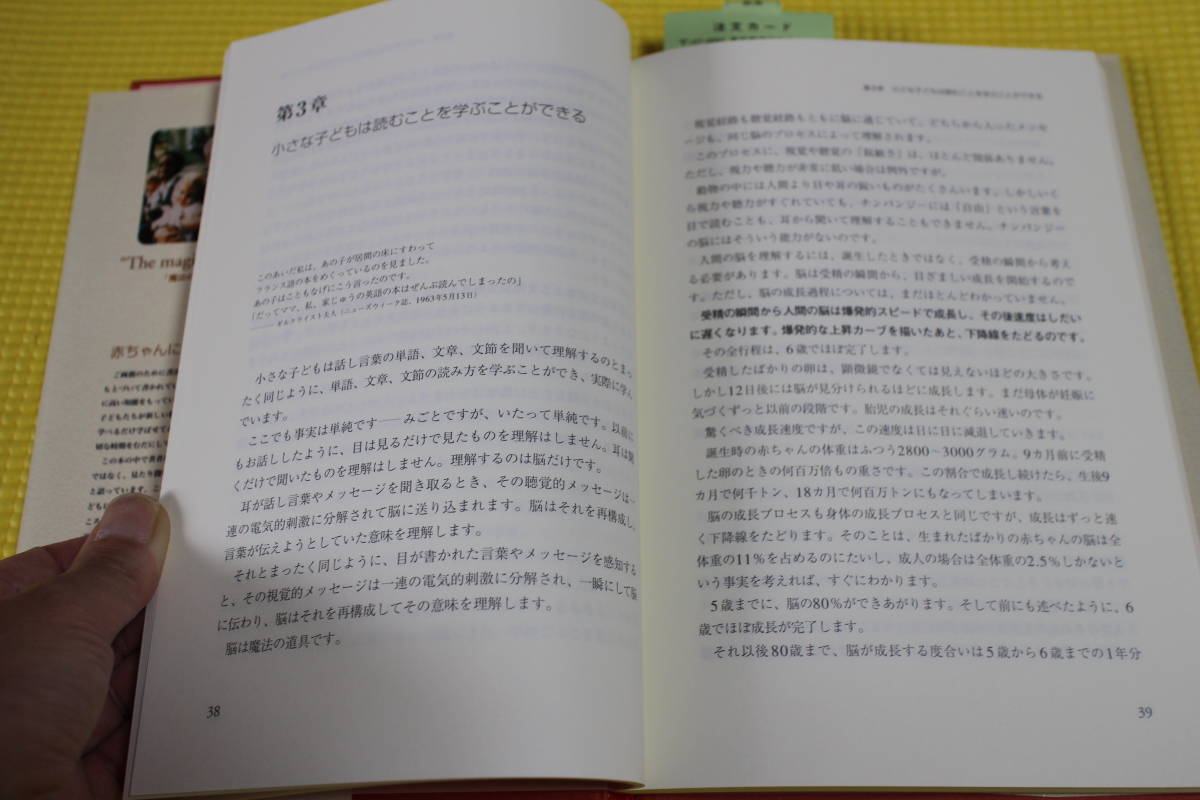 注文カード
"The mag
赤ちゃんに
第3章
小さな子どもは読むことを学ぶことができる
このあいだ私は、あの子が居間の床にすわって
フランス語の本をめくっているのを見ました。
あの子はこともなげにこう言ったのです。
「だってママ、私、家じゅうの英語の本はぜんぶ読んでしまったの」
――ギルクライスト夫人（ニューズウィーク誌、1963年5月13日）
小さな子どもは話し言葉の単語、文章、文節を聞いて理解するのとまっ
たく同じように、単語、文章、文節の読み方を学ぶことができ、実際に学ん
でいます。
ここでも事実は単純です――みごとですが、いたって単純です。以前に
もお話ししたように、目は見るだけで見たものを理解はしません。耳は聞
くだけで聞いたものを理解はしません。理解するのは脳だけです。
耳が話し言葉やメッセージを聞き取るとき、その聴覚的メッセージは一
連の電気的刺激に分解されて脳に送り込まれます。脳はそれを再構成し、
言葉が伝えようとしていた意味を理解します。
それとまったく同じように、目が書かれた言葉やメッセージを感知する
と、その視覚的メッセージは一連の電気的刺激に分解され、一瞬にして脳
に伝わり、脳はそれを再構成してその意味を理解します。
脳は魔法の道具です。
38
第3章 小さな子どもは読むことを学ぶことができる
視覚経路も聴覚経路もともに脳に通じていて、どちらから入ったメッセ
ージも、同じ脳のプロセスによって理解されます。
このプロセスに、視覚や聴覚の「鋭敏さ」は、ほとんど関係ありません。
ただし、視力や聴力が非常に低い場合は例外ですが。
動物の中には人間より目や耳の鋭いものがたくさんいます。しかしいく
ら視力や聴力がすぐれていても、チンパンジーには「自由」という言葉を
目で読むことも、耳から聞いて理解することもできません。チンパンジー
の脳にはそういう能力がないのです。
人間の脳を理解するには、誕生したときではなく、受精の瞬間から考え
る必要があります。脳は受精の瞬間から、目ざましい成長を開始するので
す。ただし、脳の成長過程については、まだほとんどわかっていません。
受精の瞬間から人間の脳は爆発的スピードで成長し、その後速度はしだい
に遅くなります。爆発的な上昇カーブを描いたあと、下降線をたどるのです。
その全行程は、6歳でほぼ完了します。
受精したばかりの卵は、顕微鏡でなくては見えないほどの大きさです。
しかし12日後には脳が見分けられるほどに成長します。まだ母体が妊娠に
気づくずっと以前の段階です。胎児の成長はそれぐらい速いのです。
驚くべき成長速度ですが、この速度は日に日に減退していきます。
誕生時の赤ちゃんの体重はふつう2800〜3000グラム。9カ月前に受精
した卵のときの何百万倍もの重さです。この割合で成長し続けたら、生後9
カ月で何千トン、18カ月で何百万トンにもなってしまいます。
脳の成長プロセスも身体の成長プロセスと同じですが、成長はずっと速
く下降線をたどります。そのことは、生まれたばかりの赤ちゃんの脳は全
体重の11％を占めるのにたいし、成人の場合は全体重の2.5％しかないと
いう事実を考えれば、すぐにわかります。
5歳までに、脳の80％ができあがります。そして前にも述べたように、6
歳でほぼ成長が完了します。
それ以後80歳まで、脳が成長する度合いは5歳から6歳までの1年分
39